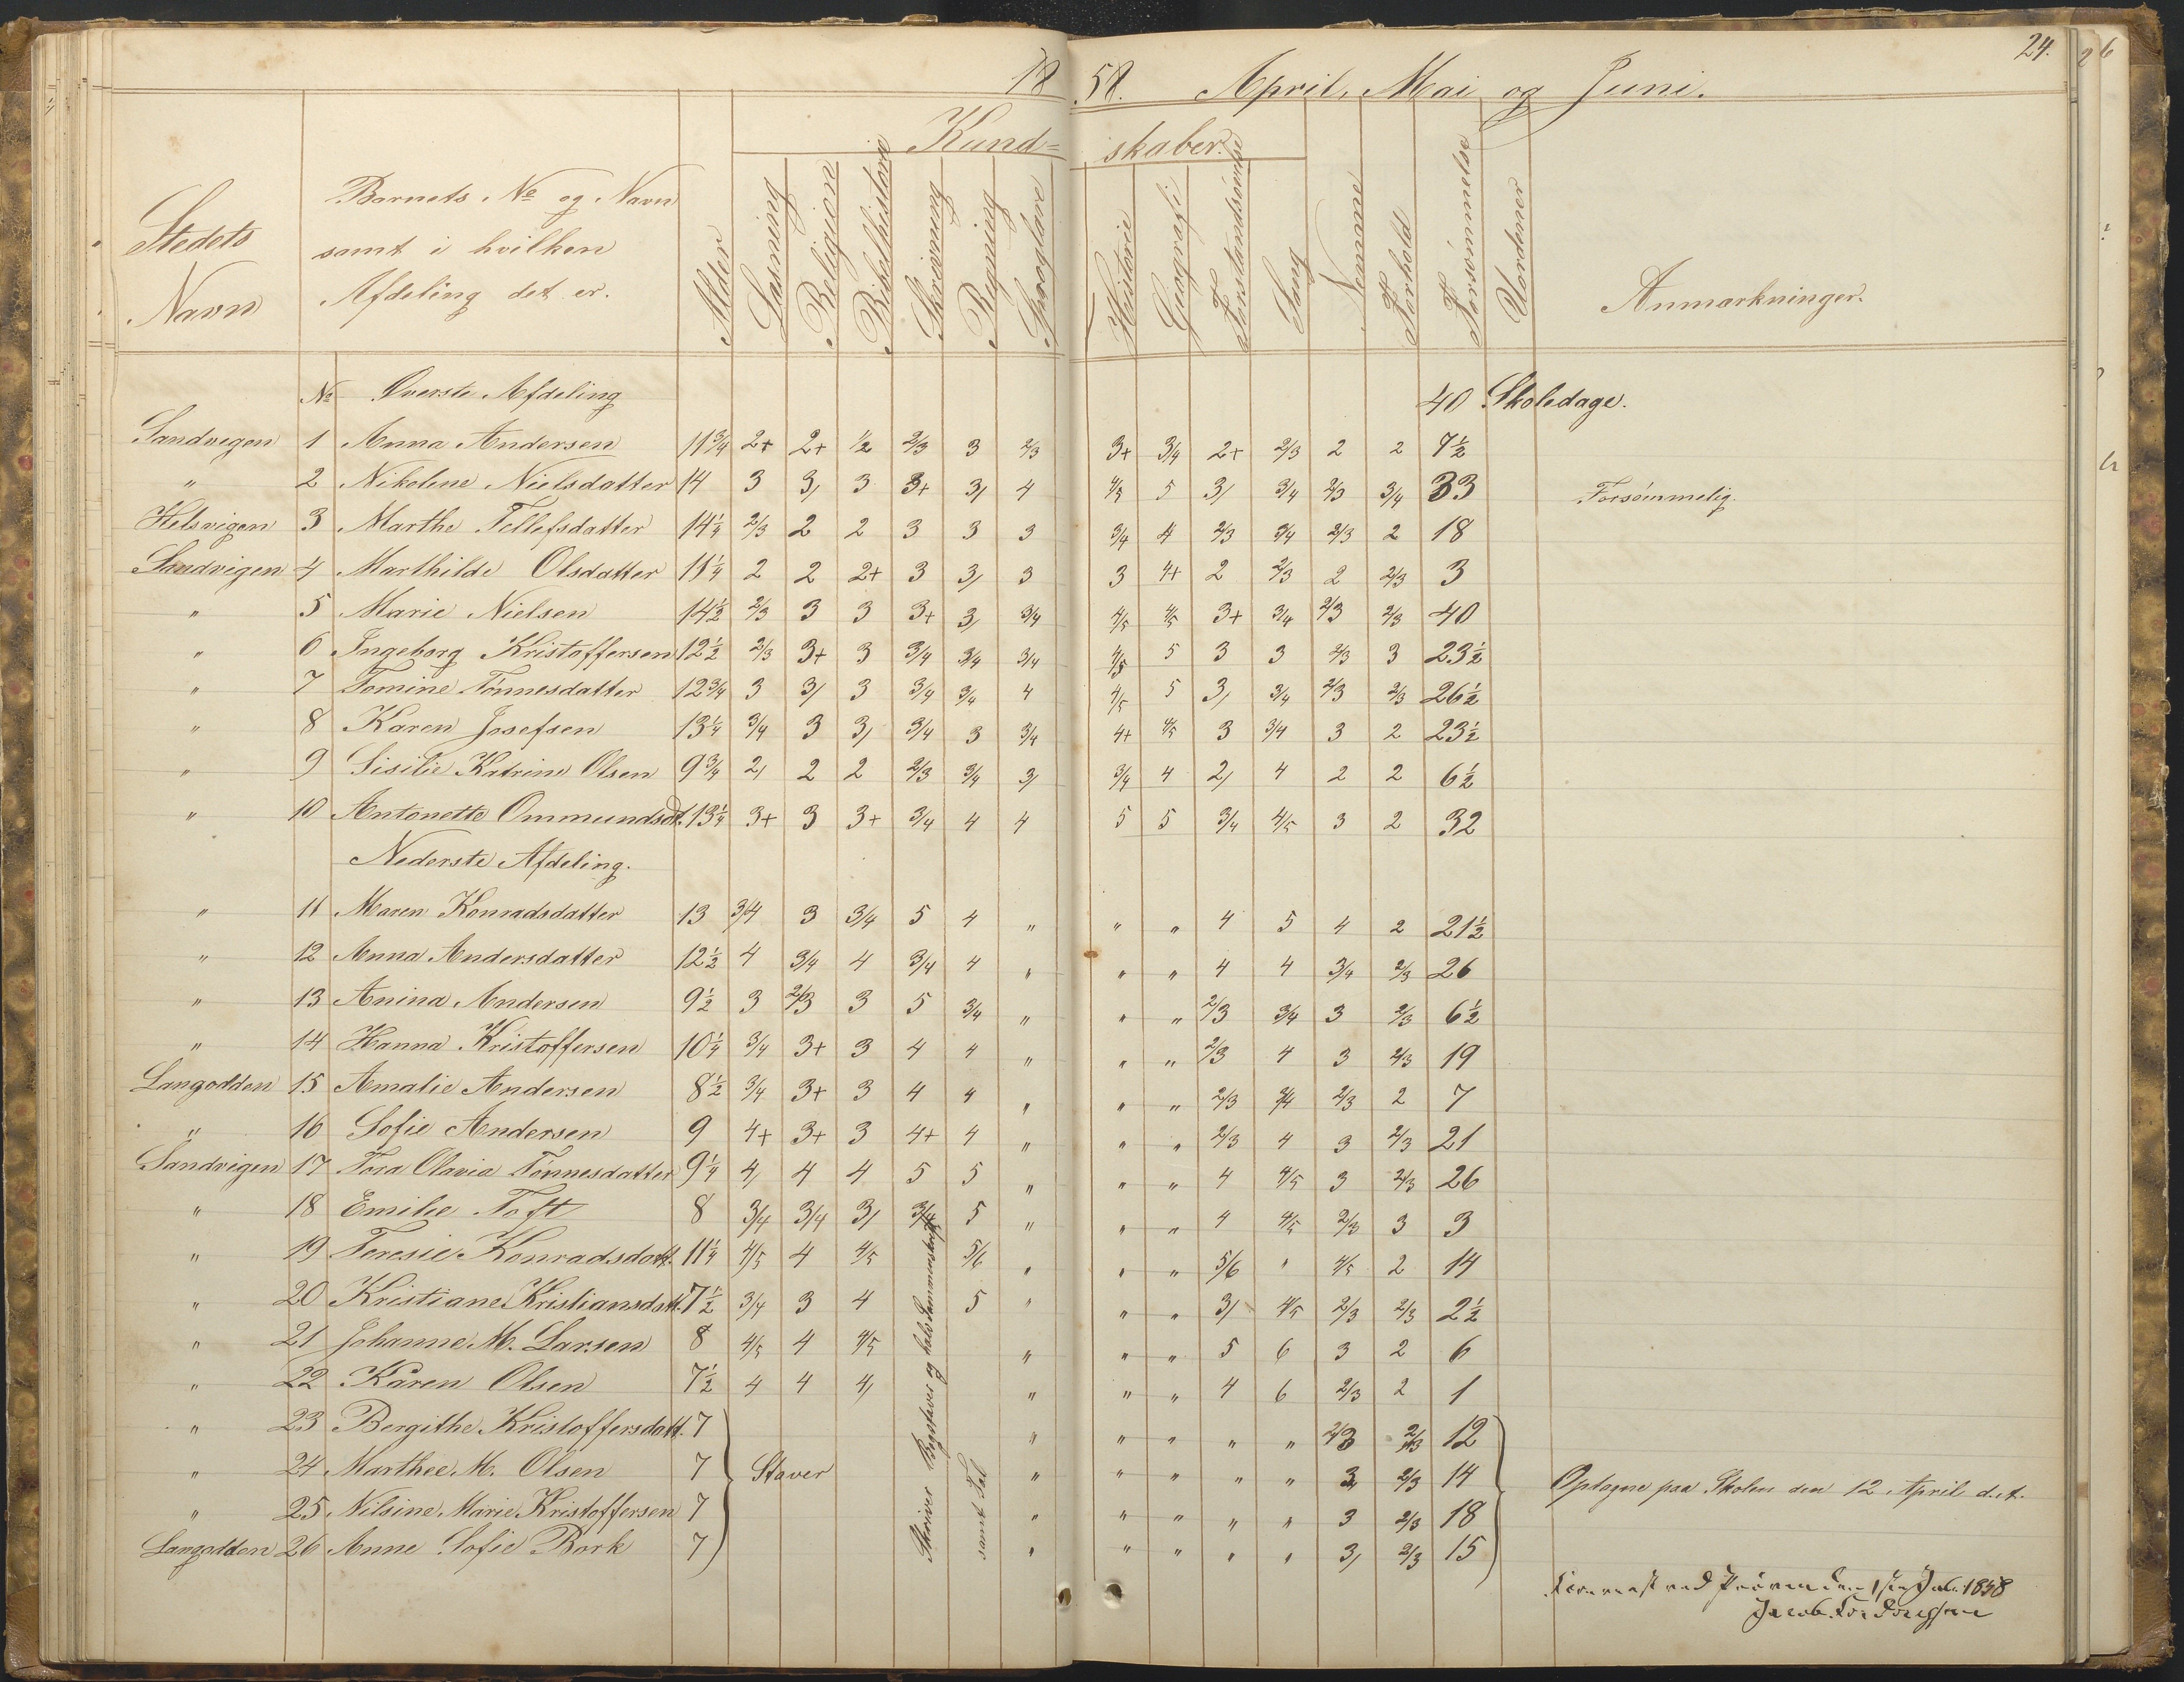 24.
1858. April, Mai og Juni.
Kund= skaber.
Stedets Navn
Barnets No og Navn samt i hvilken Afdeling det er.
Alder Læsning Religion Bibelhistorie Skrivning Regning Sproglære Historie Geografi Forstandsøvelse Sang Nemme Forhold Forsømmelse Uordener Anmærkninger.
No Øverste Afdeling 40 Skoledage.
Sandvigen 1 Anna Andersen 11 3/4 2+ 2+ 1/2 2/3 3 2/3 3+ 3/4 2+ 2/3 2 2 7 1/2
" 2 Nikoline Nielsdatter 14 3 3/ 3 3+ 3/ 4 4/5 5 3/ 3/4 2/3 3/4 33 Forsømmelig.
Helsvigen 3 Marthe Tellefsdatter 14 1/4 2/3 2 2 3 3 3 3/4 4 2/3 3/4 2/3 2 18
Sandvigen 4 Marthilde Olsdatter 11 1/4 2 2 2+ 3 3/ 3 3 4+ 2 2/3 2 2/3 3
" 5 Marie Nielsen 14 1/2 2/3 3 3 3+ 3/ 3/4 4/5 4/5 3+ 3/4 2/3 2/3 40
" 6 Ingeborg Kristoffersen 12 1/2 2/3 3+ 3 3/4 3/4 3/4 4/5 5 3 3 2/3 3 23 1/2
" 7 Tomine Tønnesdatter 12 3/4 3 3/ 3 3/4 3/4 4 4/5 5 3/ 3/4 2/3 2/3 26 1/2
" 8 Karen Josefsen 13 1/4 3/4 3 3/ 3/4 3 3/4 4+ 4/5 3 3/4 3 2 23 1/2
" 9 Sisilie Katrine Olsen 9 3/4 2/ 2 2 2/3 3/4 3/ 3/4 4 2/ 4 2 2 6 1/2
" 10 Antonette Ommundsdt. 13 1/4 3+ 3 3+ 3/4 4 4 5 5 3/4 4/5 3 2 32
Nederste Afdeling.
" 11 Maren Konradsdatter 13 3/4 3 3/4 5 4 " " " 4 5 4 2 21 1/2
" 12 Anna Andersdatter 12 1/2 4 3/4 4 3/4 4 " " " 4 4 3/4 2/3 26
" 13 Anina Andersen 9 1/2 3 2/3 3 5 3/4 " " " 2/3 3/4 3 2/3 6 1/2
" 14 Hanna Kristoffersen 10 1/4 3/4 3+ 3 4 4 " " " 2/3 4 3 2/3 19
Langodden 15 Amalie Andersen 8 1/2 3/4 3+ 3 4 4 " " " 2/3 3/4 2/3 2 7
" 16 Sofie Andersen 9 4+ 3+ 3 4+ 4 " " " 2/3 4 3 2/3 21
Sandvigen 17 Tora Olavia Tønnesdatter 9 1/4 4/ 4 4 5 5 " " " 4 4/5 3 2/3 26
" 18 Emilie Toft 8 3/4 3/4 3/ 3/4 5 " " " 4 4/5 2/3 3 3
" 19 Teresie Konradsdatt. 11 1/4 4/5 4 4/5 5/6 " " " 5/6 " 4/5 2 14
" 20 Kristiane Kristiansdatt. 7 1/2 3/4 3 4 5 " " " 3/ 4/5 2/3 2/3 2 1/2
" 21 Johanne M. Larsen 8 4/5 4 4/5 " " " 5 6 3 2 6
" 22 Karen Olsen 7 1/2 4 4 4/ " " " 4 6 2/3 2 1
" 23 Bergithe Kristoffersdatt. 7 " " " " " 2/3 2/3 12
" 24 Marthee M. Olsen 7 Staver " " " " " 3 2/3 14
" 25 Nilsine Marie Kristoffersen 7 " " " " " 3 2/3 18
Langodden 26 Anne Sofie Bork 7 " " " " " 3/ 2/3 15
Skriver Bogstaver og halv Sammenskrift
samt Tal
Optagne paa Skolen den 12 April d.A.
1858
Jacob